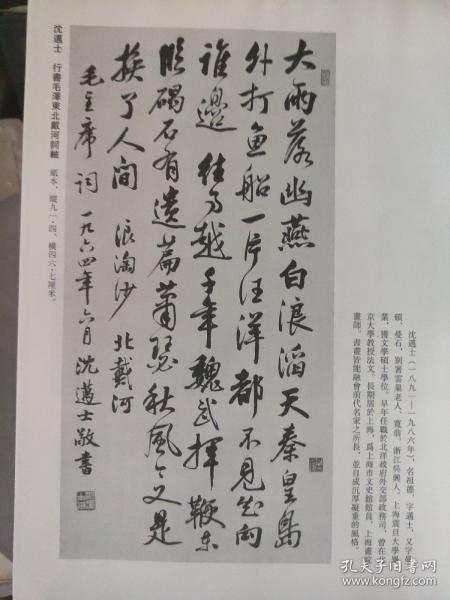 沈邁士（一八九一—一九八六年），名祖德，字邁士，又字
碩、曼石，別署雲巢老人、寬翁，浙江吳興人。上海震旦大學畢
業，獲文學碩士學位。早年任職於北洋政府外交部政務司，曾在北
京大學教授法文。長期居於上海，爲上海市文史館館員，上海畫院
畫師。書畫皆能融會前代名家之所長，並自成沉厚凝重的風格。
大雨落幽燕白浪滔天秦皇島
外打魚船一片汪洋都不見知向
誰邊 往事越千年魏武揮鞭東
臨碣石有遺篇蕭瑟秋風今又是
換了人間 浪淘沙 北戴河
毛主席詞 一九六四年六月沈邁士敬書
沈邁士 行書毛澤東北戴河詞軸 紙本，縱九一·四、橫四六·七厘米。
孔夫子旧书网